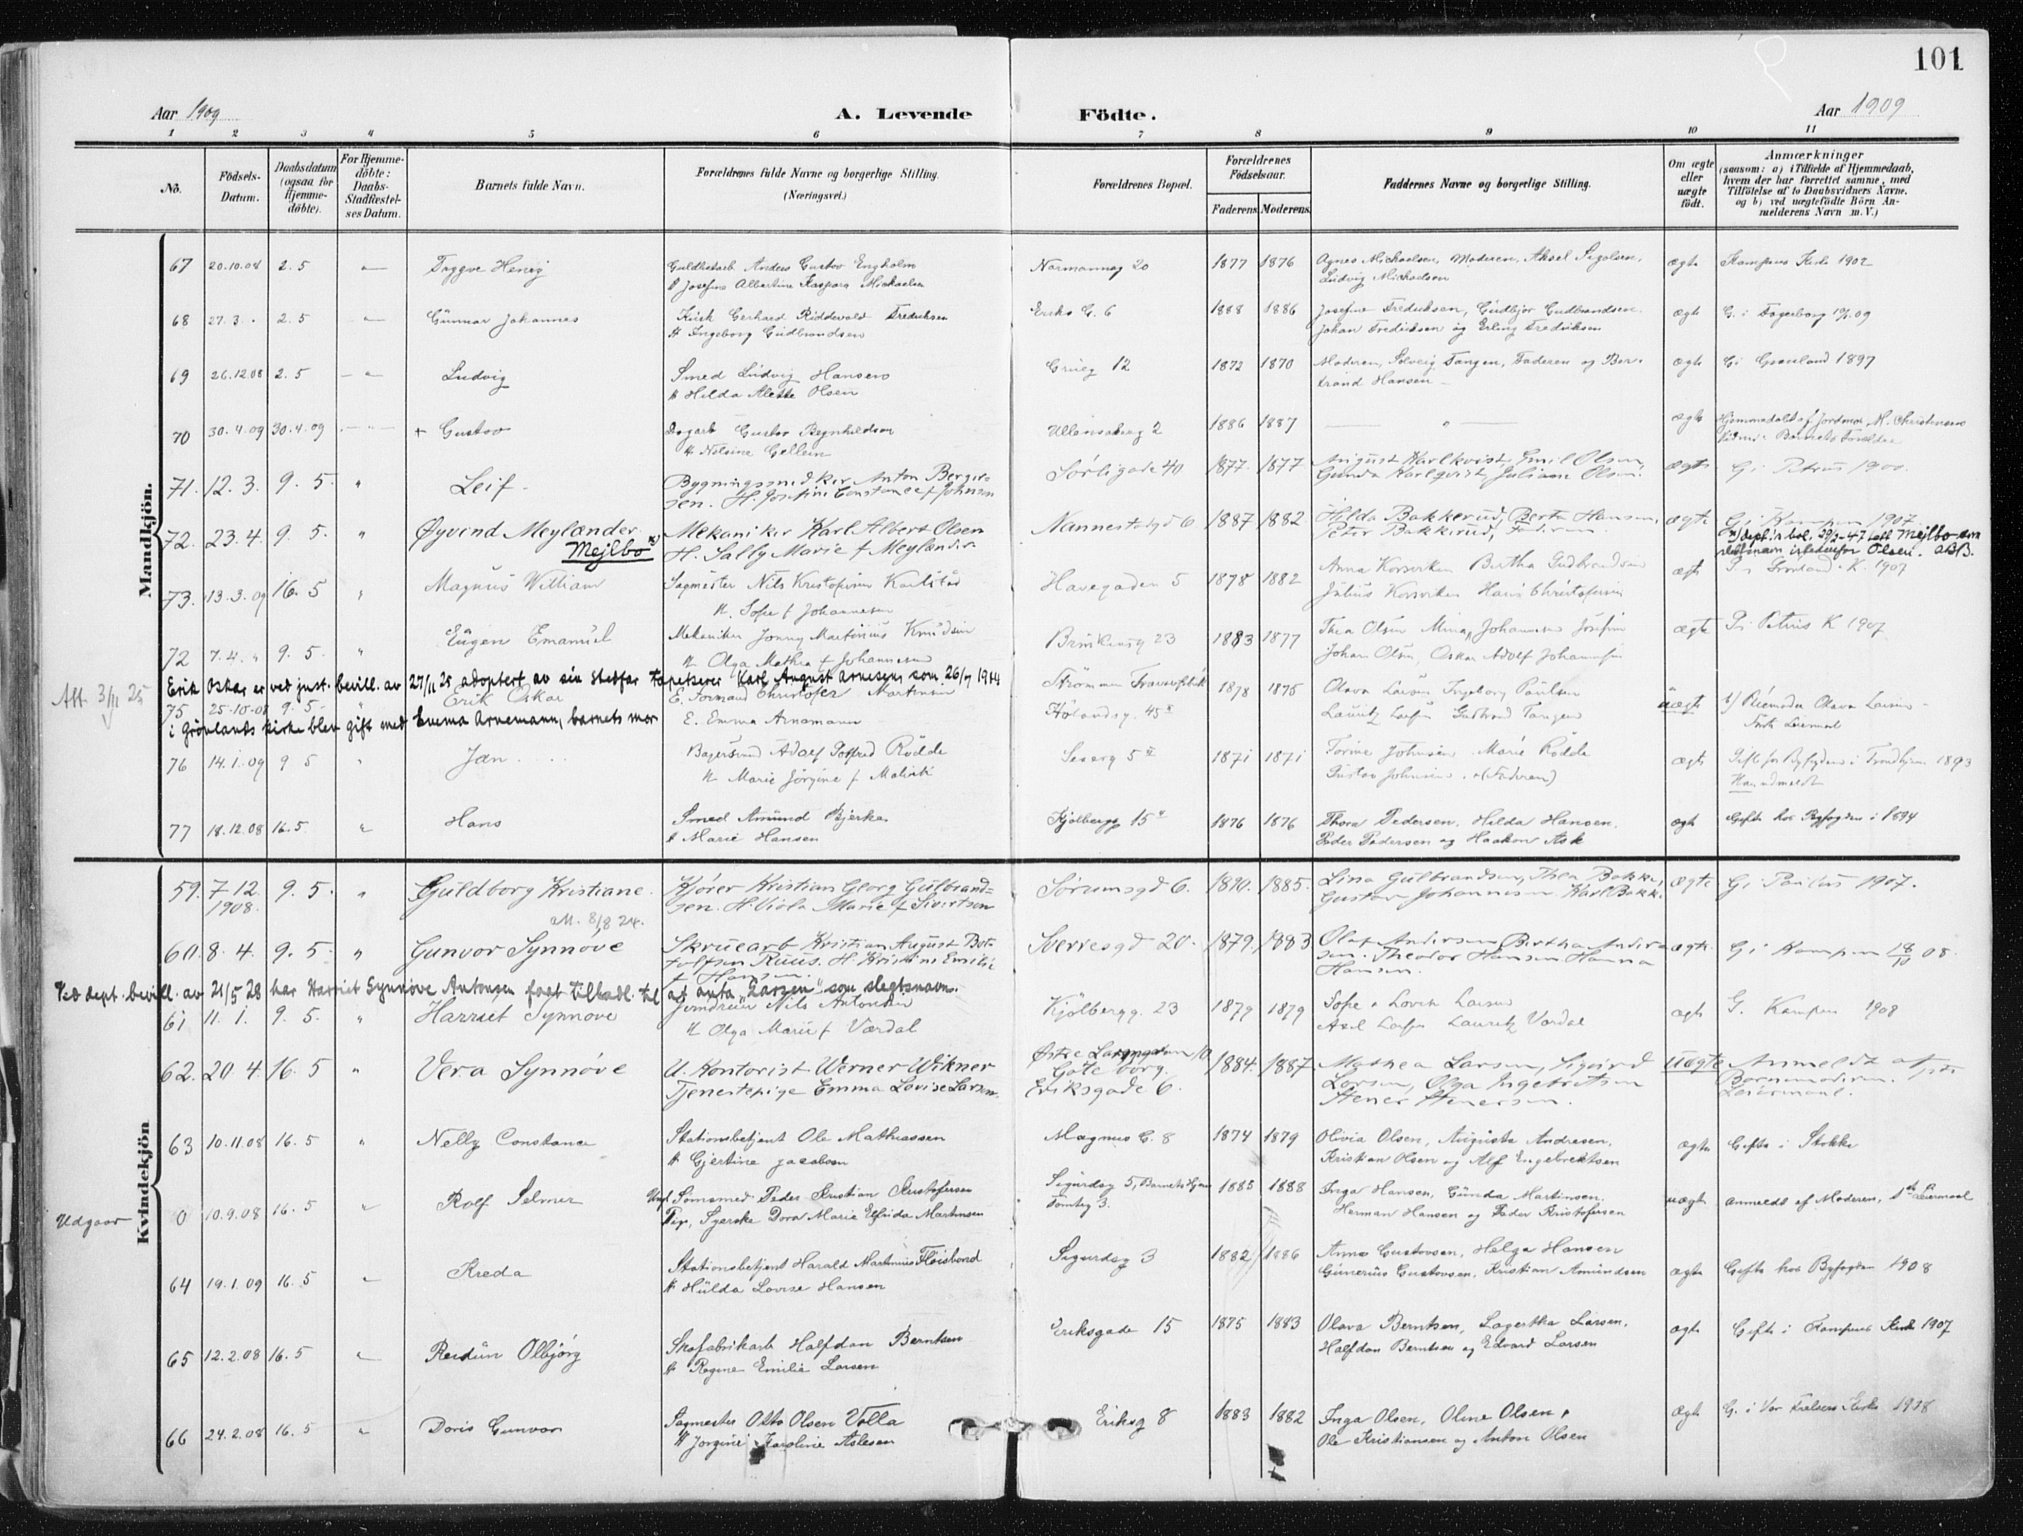 101
Aar 1909
A. Levende
Födte.
Aar 1909
1 2 3 4 5 6 7 8 9 10 11
No.
Födsels-
Datum.
Daabsdatum
(ogsaa for
Hjemme-
döbte).
For Hjemme-
döbte:
Daabs-
Stadfæstel-
ses Datum.
Barnets fulde Navn.
Forældrenes fulde Navne og borgerlige Stilling.
(Næringsvei.)
Forældrenes Bopæl.
Forældrenes
Födselsaar.
Faderens.
Moderens.
Faddernes Navne og borgerlige Stilling.
Om ægte
eller
uægte
födt.
Anmærkninger
(saasom: a) i Tilfælde af Hjemmedaab,
hvem der har forrettet samme, med
Tilföielse af to Daabsvidners Navne,
og b) ved uægtefödte Börn An-
melderens Navn m. V.)
Mandkjön.
67 20.10.08 2.5 Tryggve Henig Guldlistarb. Anders Gustav Engholm Normannsg 20 1877 1876 Agnes Michaelsen, Moderen, Aksel
ægte Kampens Kirke 1902
Josefine Albertine Kaspara Michaelsen
Ludvig Michaelsen
68 27.3 2.5 Gunnar Johannes Kusk Gerhard Riddevold Fredriksen Eriks G. 6 1888 1886 Josefine Fredriksen, Gudbjør Gudbrandsen.
ægte G. i Fagerborg
H Ingeborg Gudbrandsen
Johan Fredriksen og Erling Fredriksen
69 26.12.08 2.5 Ludvig Smed Ludvig Hansen 12 1872 1870 Moderen, Solveig Tangen, Faderen og Ber-
ægte G. i Grønland 1897
H Hilda Alette Olsen
trand Hansen
70 30.4.09 30.4.09 + Gustav Dagarb Gustav Regnhildsen Ullensakerg 2 1886 1887
ægte Hjemmedøbt af Jordmor M. Christensen
H Nelsine Gellein
Vidner: Barnets Forældre
71. 12.3. 9.5. Leif. Bygningssnedker Anton Berger- Sørligade 40 1877. 1877 August Karlkvist, Emil Olsen
ægte G. i Petrus 1900.
sen. H. Josefine Constance f Johnsen
Gunda Karlqvist Juliane Olsen
72. 23.4. 9.5. Øyvind Meylænder Mekaniker Karl Albert Olsen Nannestadgd 6 1887 1882 Hilda Bakkerud, Berta Hansen,
ægte G. i Kampen 1907.
Mejlbo x)
H. Sally Marie f Meylænder
Peter Bakkerud, Faderen
x) dept.'s bev. 29/3-47 Mejlbo som
slektsnavn istedenfor Olsen.
73. 13.3.09 16.5 Magnus William Sagmester Nils Kristofersen Karlstad Havegaden 5 1878 1882 Anna Korsviken Bertha Gudbrandsen
ægte G. i Grønland K. 1907
H. Sofie f Johannesen
Julius Korsviken Hans Christofersen
72 7.4. 9.5. Eugen Emanuel Mekaniker Jonny Martinius Knudsen Brinkensg 23 1883 1877 Thea Olsen Minna Johannesen Josefin
ægte G. i Petrus K 1907
H. Olga Mathea f Johannesen
Johan Olsen, Oskar Adolf Johannesen
Att 3/11 25
Erik Oskar er ved just. bevill. av 27/11 25 adoptert av sin stedfar tapetserer Karl August Arnesen, som 26/7 1914
75 25-10-08 9.5. Erik Oskar E. Fornand Christofer Martinsen Strømmen Trævarefabrik 1878 1875 Olava Larsen Ingeborg Paulsen
uægte 1) Pleiemoder Olava Larsen
i Grønlands kirke blev gift med Emma Arnemann, barnets mor
E. Emma Arnemann
Hølandsg. 45
Lauritz Larsen Gudbrand Tangen
76 14.1.09 9 5 Jan Bagersvend Adolf Sofred Rødde Severg 5 1871 1871 Torine Johnsen Marie Rødde
ægte Gift for Byfogden i Trondhjem 1893
H. Marie Jörgine f Malvik
Gustav Johnsen. (Faderen)
Han udmeldt
77 18.12.08 16.5. Hans Smed Amund Bjerke Kjölbergg 15 1876 1876 Thora Pedersen, Hilda Hansen,
ægte Gifte hos Byfogden i 1894
H Marie Hansen
Peder Pedersen og Haakon Ask
Kvindekjön
59. 7.12 1908. 9.5. Guldborg Kristiane. Kjører Kristian Georg Gulbrand- Sørumsgd 6. 1890. 1885. Lina Gulbrandsen, Thea Bakke,
ægte G. i Paulus 1907.
sen. H. Viola Marie f Sivertsen
Gustav Johannesen. Karl Bakk.
att. 8/8 24.
60. 8.4. 9.5. Gunvor Synnøve Skruearb Kristian August Bot- Sverresgd 20. 1879, 1883 Olaf Andersen, Bertha Ander-
ægte. G i Kampen 18/10 08.
tolfsen Ruus. H. Kristine Emilie
f Hansen.
sen. Theodor Hansen Hanna
Hansen.
Ved dept. bevill. av 21/5 28 har Harriet Synnøve Antonsen faat tillatl. til at anta "Larsen" som slegtsnavn.
61 11.1. 9.5. Harriet Synnøve Nils Antonsen Kjölbergg. 23 1879 1879 Sofie Lovise Larsen
ægte G. Kampen 1908
H Olga Marie f Værdal
Axel Larsen Lauritz Værdal
62. 20 4. 16.5 Vera Synnøve U. Kontorist Werner Wikner Østre Larmgatan 10 1884. 1887 Mathea Larsen, Sigurd
uægte Anmeldt af
Göteborg.
Tjenestepige Emma Lovise Larsen. Eriksgade 6.
Larsen, Olga Ingebretsen
Stener Stenersen.
Barnemoderen. 1ste
Leiermaal.
63 10.11.08 16.5 Nelly Constance Stationsbetjent Ole Mathiassen Magnus G. 8 1874 1879 Olivia Olsen, Augusta Andresen,
ægte Gifte i Stokke
H Gjertine Jacobsen
Kristian Olsen og Alf Engebretsen
Udgaar 0 10.9.08 16.5 Rolf Selmer Ungk. Peder Kristian Kristofersen Sigurdsg 5, Barnets Hjem 1885 1888 Inga Hansen, Gunda Martinsen.
uægte Anmeldt af Moderen, 1ste Leiermaal
Pige, Syerske Dora Marie Elfrida Martinsen Tomteg 3.
Herman Hansen og Peder Kristofersen
64 19.1.09 16.5 Kreda Stationsbetjent Harald Martinius Fløisbond Sigurdsg 3 1882 1886 Anna Gustavsen, Helga Hansen
ægte Gifte hos Byfogden 1908
H Hulda Lovise Hansen
Gunerius Gustavsen, Kristian Amundsen
65 12.2.08 16.5 Reidun Olbjörg Skofabrikarb Halfdan Berntsen Eriksgade 15 1875 1883 Olava Berntsen, Lagertha Larsen.
ægte Gifte i Kampens Kirke 1907
H Ragna Emilie Larsen
Halfdan Berntsen og Edvard Larsen
66 24.2.08 16.5 Doris Gunvor Sagmester Otto Olsen Volla Eriksg 8 1883 1882 Inga Olsen, Oline Olsen,
ægte G. i Vor Frelsers Kirke 1908
H Jorgine Karoline Aslesen
Ole Kristiansen og Anton Olsen